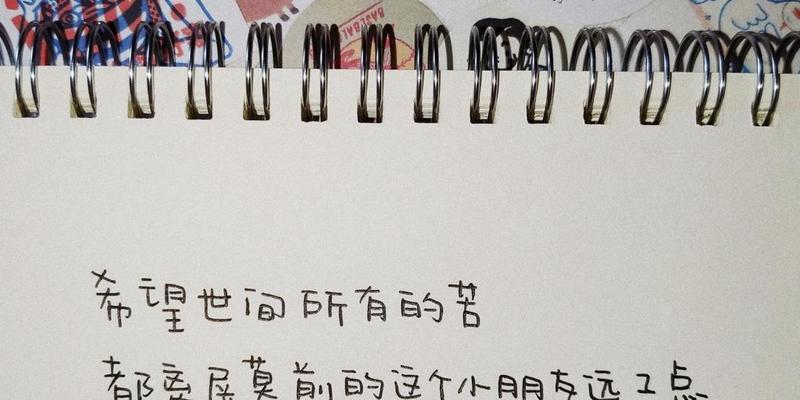 BASEBAL
希望世间所有的苦
都离屏幕前的这个小朋友远点